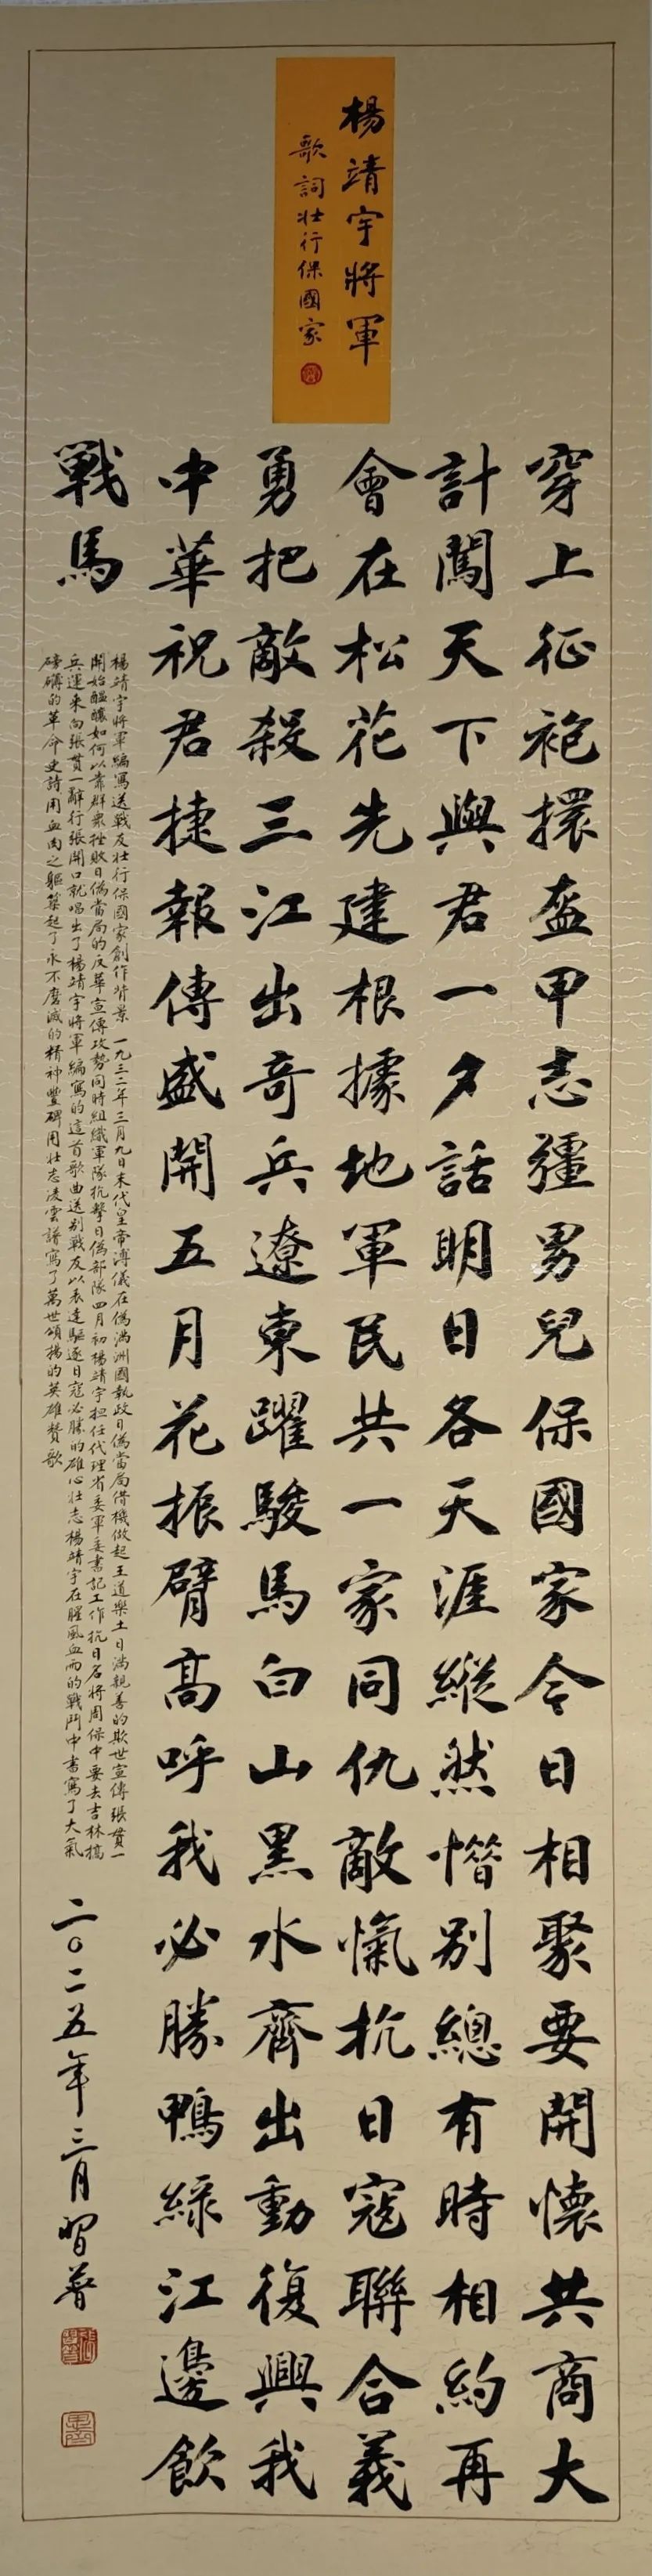 楊靖宇將軍
歌詞壯行保國家
穿上征袍擐盔甲志疆男兒保國家今日相聚要開懷共商大
計闖天下與君一夕話明日各天涯縱然憯別總有時相約再
會在松花先建根據地軍民共一家同仇敵愾抗日寇聯合義
勇把敵殺三江出奇兵遼東躍駿馬白山黑水齊出動復興我
中華祝君捷報傳盛開五月花振臂高呼我必勝鴨綠江邊飲
戰馬
楊靖宇將軍編寫送戰友壯行保國家創作背景一九三二年三月九日末代皇帝溥儀在偽滿洲國執政日偽當局借機做起王道樂土日滿親善的欺世宣傳張貫一
開始醞釀如何以靠群眾挫敗日偽當局的反華宣傳攻勢同時組織軍隊抗擊日偽部隊四月初楊靖宇擔任代理省委軍委書記工作抗日名將周保中要去吉林搞
兵運來向張貫一辭行張開口就唱出了楊靖宇將軍編寫的這首歌曲送別戰友以表達驅逐日寇必勝的雄心壯志楊靖宇在腥風血雨的戰鬥中書寫了大氣
磅礴的革命史詩用血肉之軀築起了永不磨滅的精神豐碑用壯志凌雲譜寫了萬世頌揚的英雄贊歌
二〇二五年三月習普